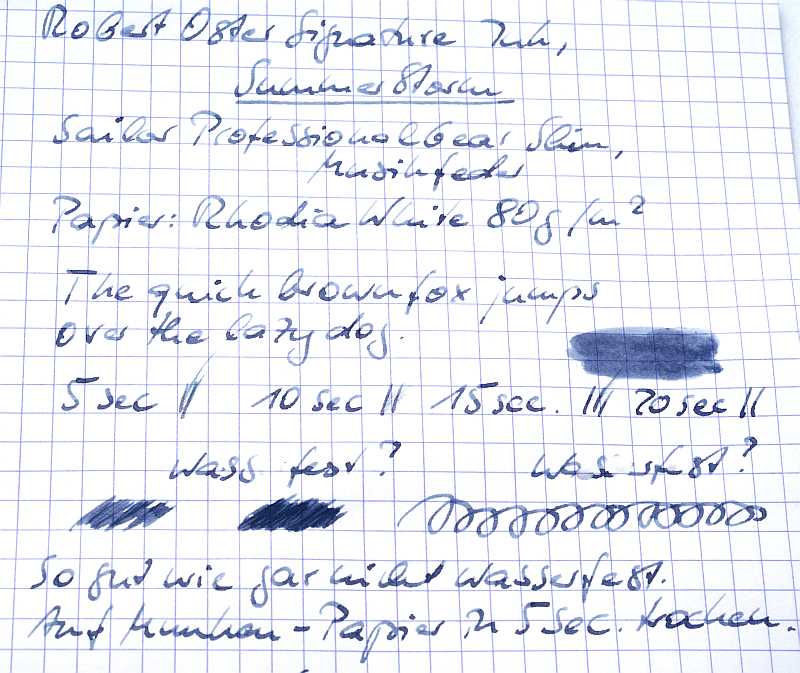 Robert Oster Signature Ink,
Summer Storm
Sailor Professional Gear Slim,
Musikfeder
Papier: Rhodia White 80g/m²
The quick brown fox jumps
over the lazy dog.
5 sec 10 sec 15 sec. 20 sec
wass fest? was rfest?
So gut wie gar nicht wasserfest.
Auf - Papier in 5 sec. trocken.